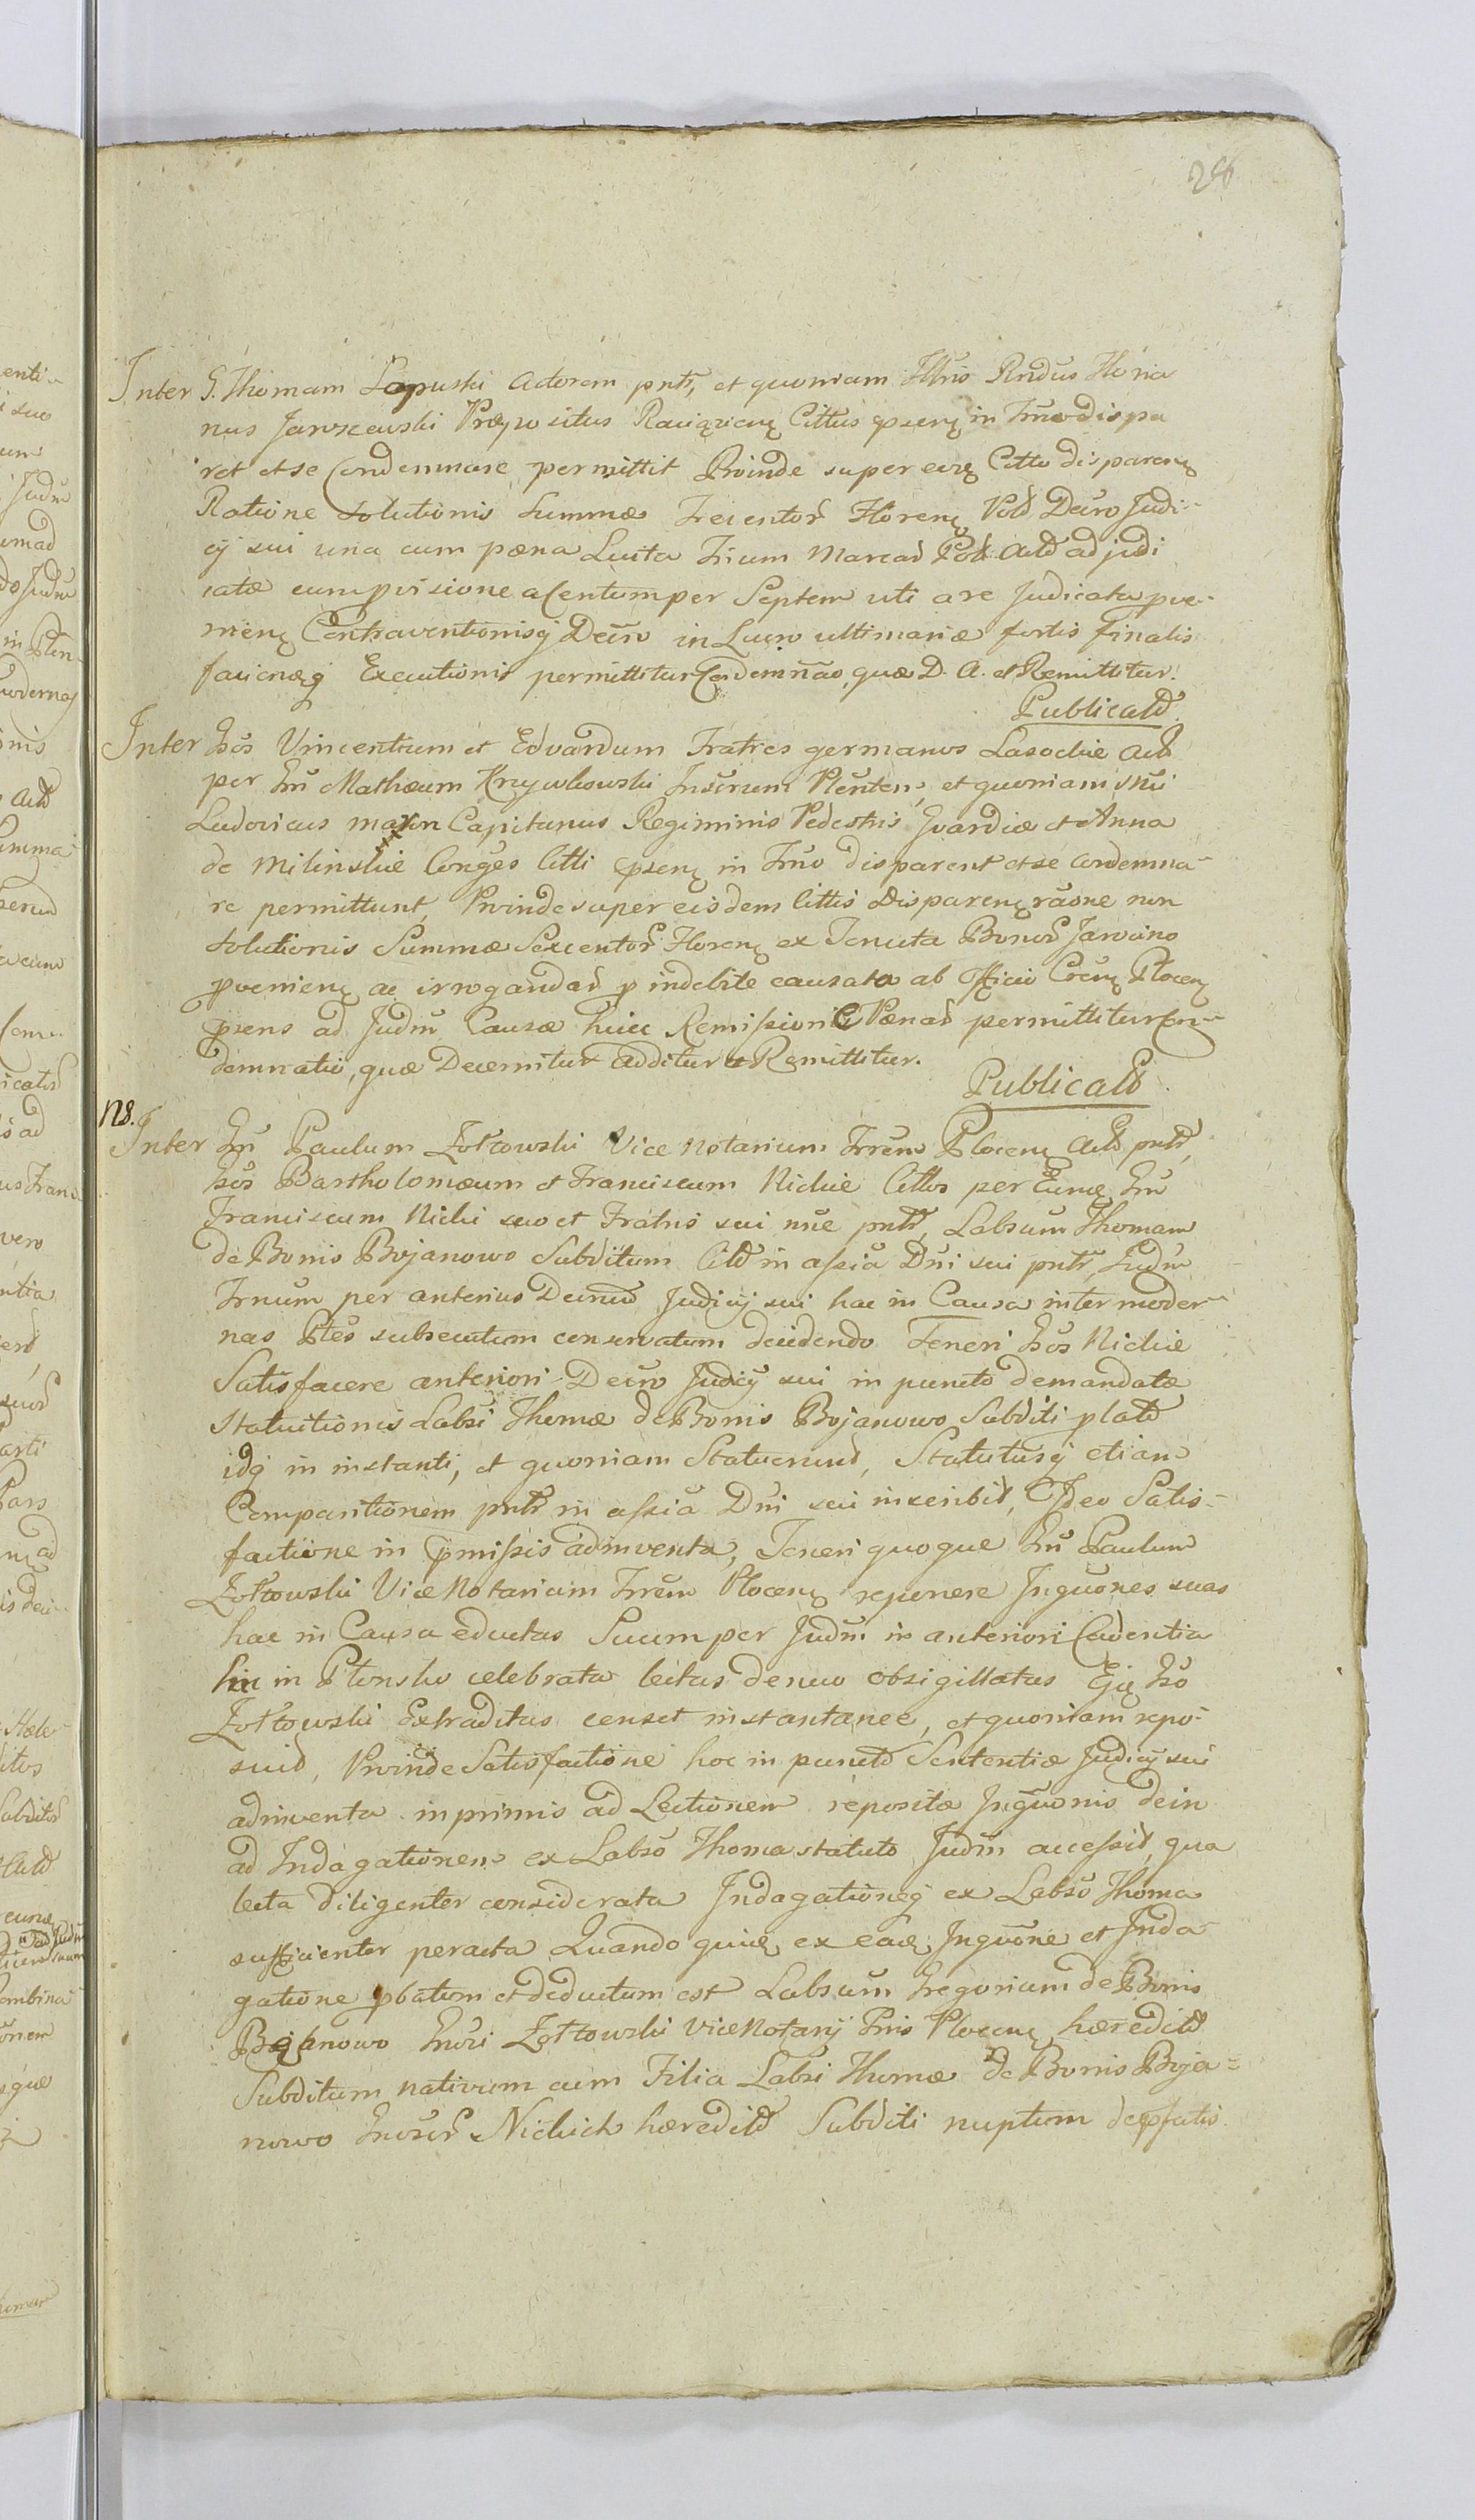 Inter G. Thomam Lopuski Actorem pntr, et quoniam Illris Rndus Floria
nus Jarszewski Præpositus Raciązienę Cittus pserię in Trno dispa
ret et se Condemnare permittit Proinde super eoię Citto disparenę
Ratione solutionis Summæ Trecentor Florenę Pold Decro Judi-
cÿ sui una cum pæna Luita Trium Marcad Pol. Actd adjudi
catæ cum pvisione a Centum per Septem uti a re Judicata pve-
nienę Contraventionisq Decro in Lucro ultimariæ fortis finalis
faciendæq Executionis permittitur Condemnao, quæ D. A. et Remittitur.
Publicatd
Inter Gsos Vincentium et Edvardum Fratres germanos Lasockie Actd
per Gm Mathæum Krzywkowski Inserum Plenten, et quoniam Mci
Ludovicus Capitanus Regiminis Pedestris Gvardiæ et Anna
de Milinskie Conges Citti psenę in Trno disparent et se condemna-
re permittunt, Proinde super eisdem Cittis Disparenę raone non
solutionis Summæ Sexcentor Florenę ex Tenuta Bonor Jarocino
pvenienę ac irrogandar p indebite causata ab Officio Crenę Plocenę
psens ad Judm Causæ huic Remissione Pænar permittitur Con-
demnatio, quæ Decernitur Additur et Remittitur.
Publicatd
NB.
Inter Gm Paulum Żołtowski Vice Notarium Trrem Plocenę Actd pntr,
Gsos Bartholomæum et Franciscum Nickie Cittos per Eumę Gm
Franciscum Nicki suo et Fratris sui nne pntr, Labsum Thomam
de Bonis Bojanowo Subditum Citd in assia Dni sui pntr, Judm
Trnum per anterius Decrum Judicÿ sui hac in Causa inter moder-
nas Ptes subsecutum conservatum decidendo Teneri Gsos Nickie
Satisfacere anteriori Decro Judicÿ sui in puncto demandatæ
Statuitionis Labsi Thomæ de Bonis Bojanowo Subditi platd
idq in instanti, et quoniam Statuerund, Statutusq etiam
Comparitionem pntr in assia Dni sui inscribit, Ideo Satis-
factione in pmissis adinventa, Teneri quoque Gm Paulum
Żołtowski Vice Notarium Trrem Plocenę reponere Inquones suas
hac in Causa eductas Suum per Judm in anteriori Cadentia
hic in Plonsko celebrata lectas denuo obsigillatas Ejq Gso
Żołtowski Extraditas censet instantanee, et quoniam repo-
suid, Proinde Satisfactione hoc in punctd Sententiæ Judicÿ sui
adinventa inprimis ad Lectionem repositæ Inquonis dein
ad Indagationem ex Labso Thoma statuto Judm accessid, qua
lecta Diligenter considerata Indagationeq ex Labso Thoma
sufficienter peracta Quando quidę ex eadę Inquone et Inda-
gatione pbatum et deductum est Labsum Gregorium de Bonis
Bojanowo Gnosi Żołtowski Vice Notarÿ Trris Plocenę hæreditd
Subditum nativum cum Filia Labsi Thomæ de Bonis Boja-
nowo Gnosor Nickich hæreditd Subditi nuptum de pfatis